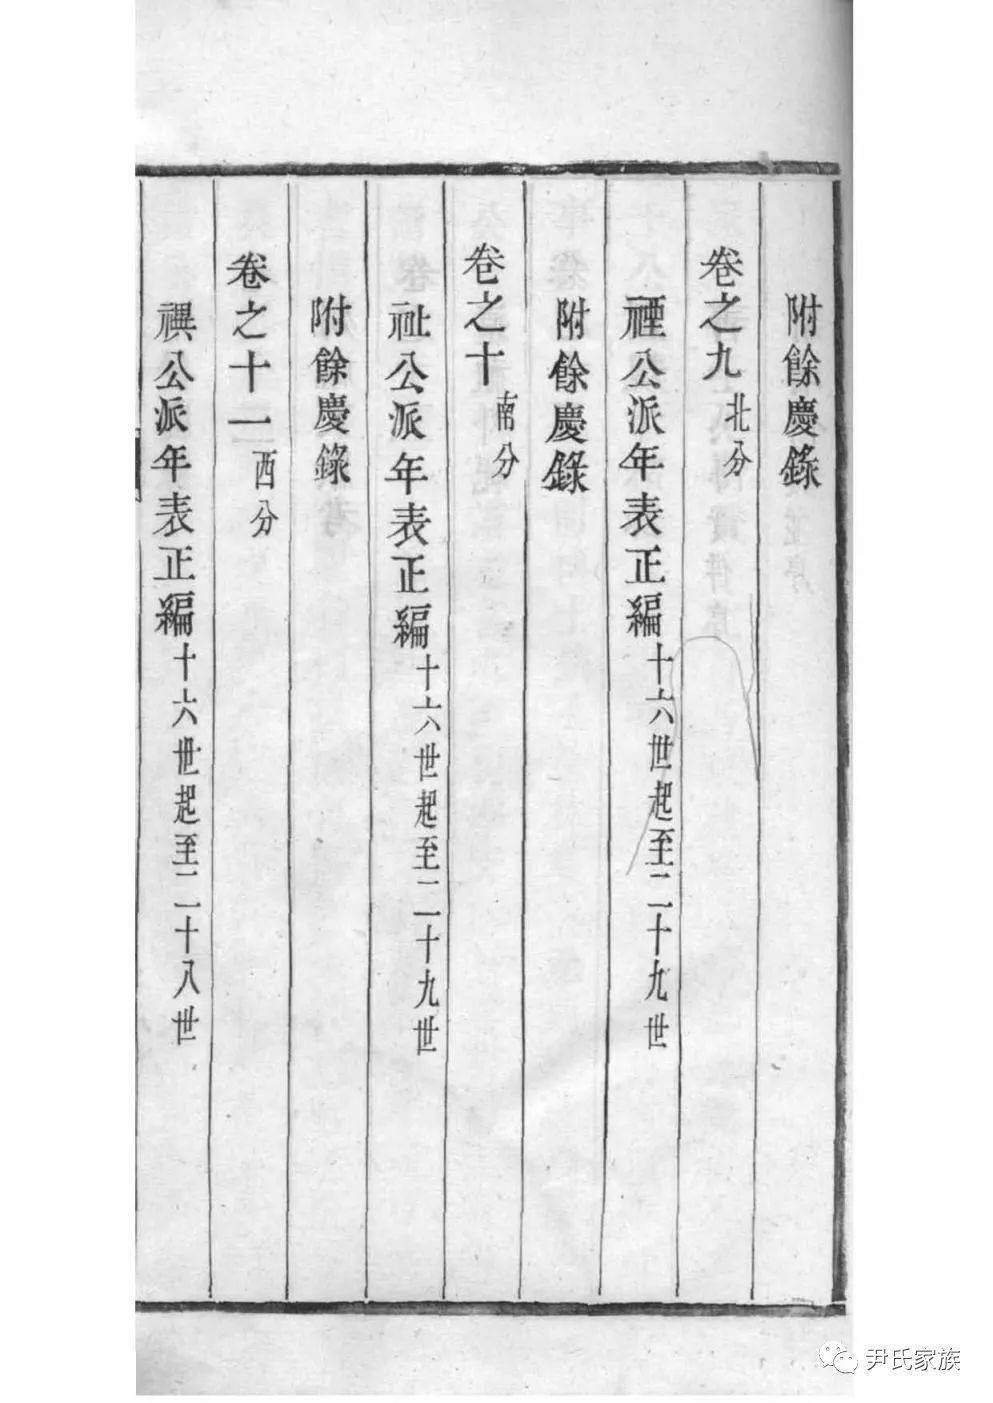 附餘慶錄
卷之九 北分
禋公派年表正編 十六世起至二十九世
附餘慶錄
卷之十 南分
祉公派年表正編 十六世起至二十九世
附餘慶錄
卷之十一 西分
禩公派年表正編 十六世起至二十八世
尹氏家族